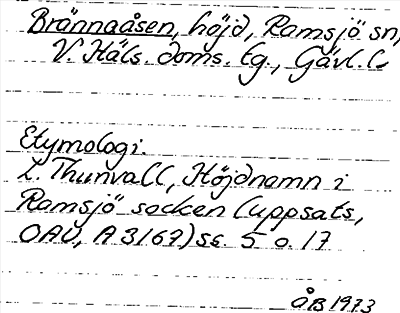 Brännaåsen, höjd, Ramsjö sn,
V. Häls. doms. tg., Gävl. l
Etymologi.
L. Thunvall, Höjdnamn i
Ramsjö socken (uppsats,
OAU, A 3167) ss. 5 o. 17
ÅB 1973